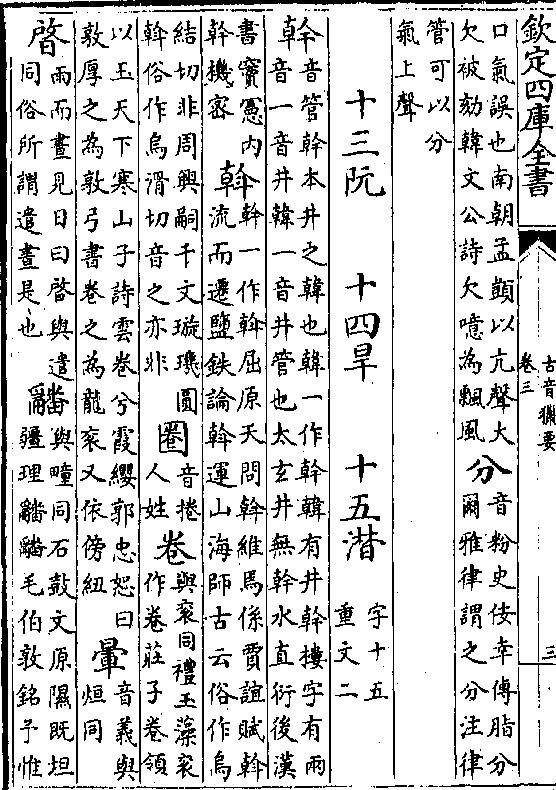 欽定四庫全書
古音獵要
卷三
三
口氣誤也南朝孟顗以亢聲大
欠被劾韓文公詩欠噫為飄風
分
音粉史佞幸傳脂分
爾雅律謂之分注律
管可以分
氣上聲
十三阮 十四旱 十五潸
字十五
重文二
幹
音管幹本井之韓也韓一作幹韓有井幹樓字有兩
音一音井韓一音井管也太玄井無幹水直衍後漢
書竇憲內
幹機密
斡
斡一作幹屈原天問斡維焉係賈誼賦斡
流而遷鹽鉄論斡運山海師古云俗作烏
結切非周興嗣千文璇璣圓
斡俗作烏滑切音之亦非
圈
音捲
人姓
卷
與衮同禮玉藻衮
作卷莊子卷領
以玉天下寒山子詩雲卷兮霞纓郭忠恕曰
敦厚之為敦弓書卷之為龍衮又依傍紐
暈
音義與
烜同
晵
雨而晝見日曰晵與遣
同俗所謂遣晝是也
與疃同石鼓文原隰既坦
疆理毛伯敦銘予惟